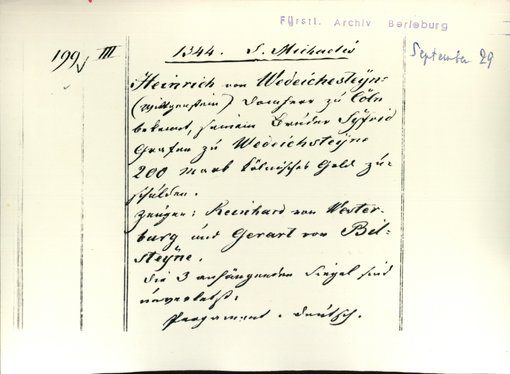 Fürstl. Archiv Berleburg
199, III 1344. S. Michaelis
September 29
Heinrich von Wedeichesteyn
(Wittgenstein) Domherr zu Cöln
bekennt, seinem Bruder Syfrid
Grafen zu Wedeichsteyne
200 Mark Cölnisches Geld zu
schulden.
Zeugen: Reinhard von Wester-
burg und Gerart von Bil-
steyne.
Die 3 anhängenden Siegel sind
unverletzt.
Pergament. deutsch.